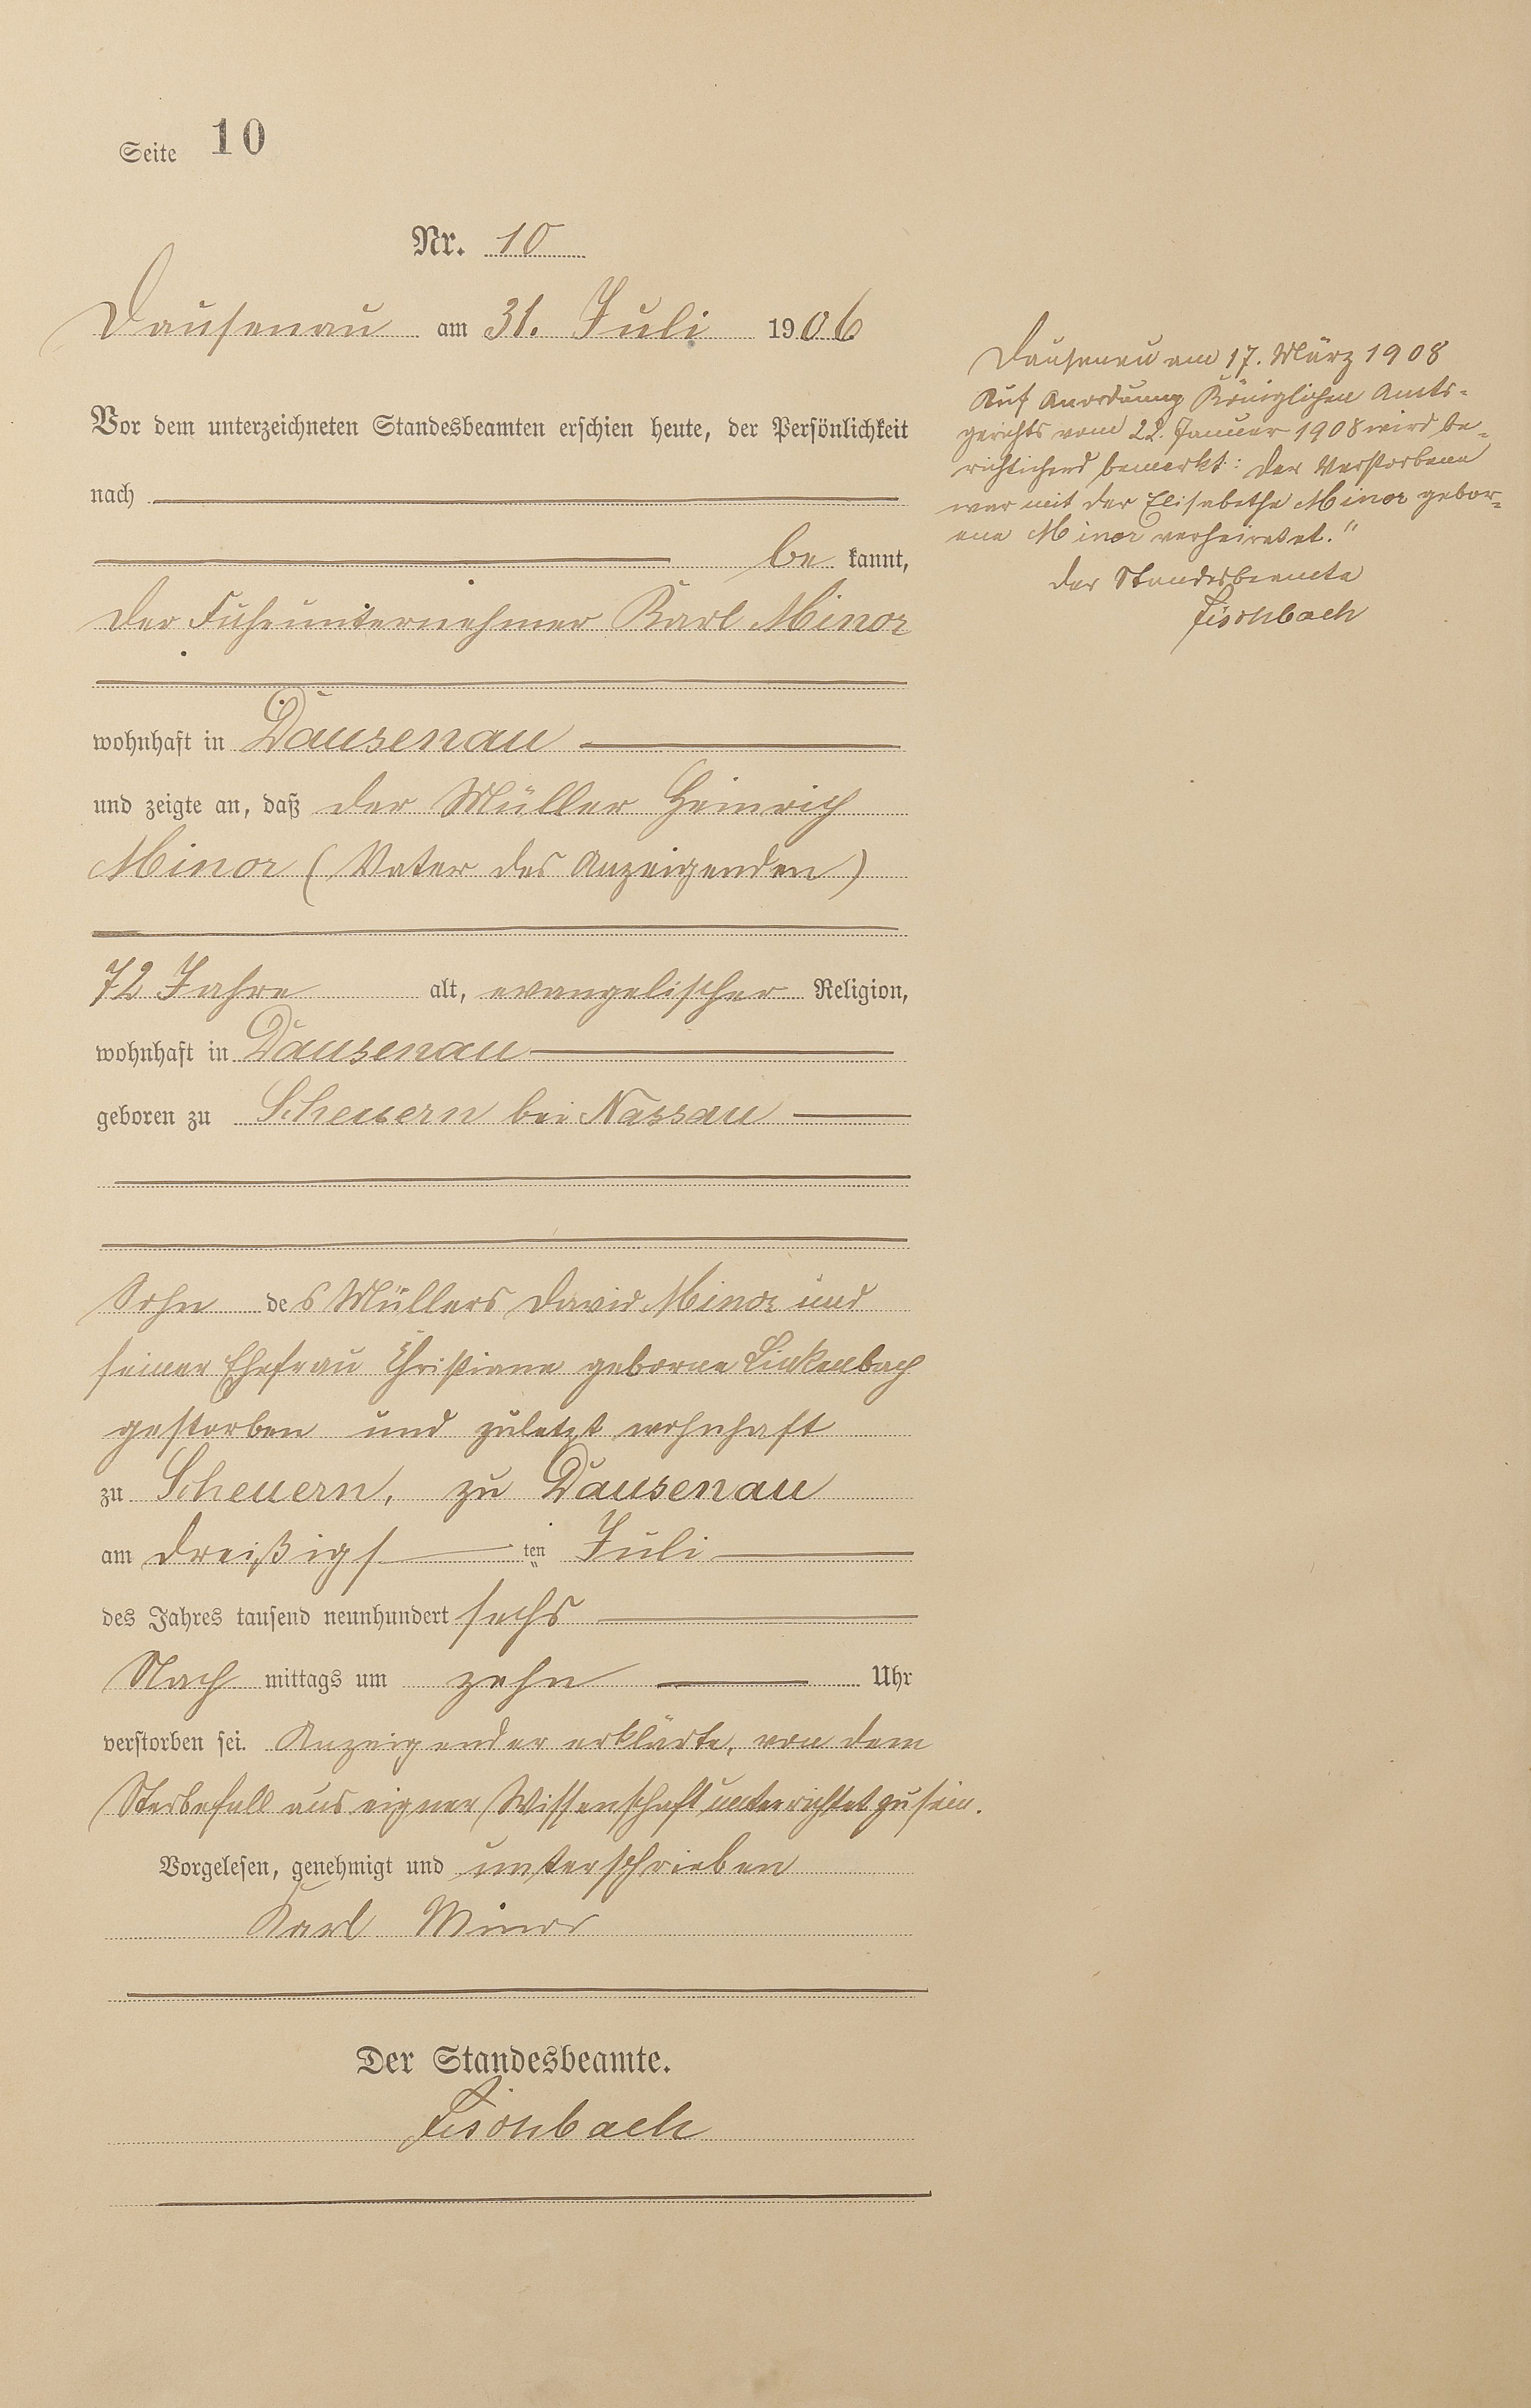 Seite 10
Nr. 10
Dausenau am 31. Juli 1906
Vor dem unterzeichneten Standesbeamten erschien heute, der Persönlichkeit
nach
be kannt,
der Fuhrunternehmer Karl Minor
wohnhaft in Dausenau
und zeigte an, daß der Müller Heinrich
Minor (Vater des Anzeigenden)
72 Jahre alt, evangelischer Religion,
wohnhaft in Dausenau
geboren zu Scheuern bei Nassau
Sohn des Müllers David Minor und
seiner Ehefrau Christiane geborne Linkenbach
gestorben und zuletzt wohnhaft
zu Scheuern, zu Dausenau
am dreißigsten Juli
des Jahres tausend neunhundert sechs
Nach mittags um zehn Uhr
verstorben sei. Anzeigender erklärte, von dem
Sterbefall aus eigner Wissenschaft unterrichtet zu sein.
Vorgelesen, genehmigt und unterschrieben
Karl Minor
Der Standesbeamte.
Fischbach
Dausenau am 17. März 1908
Auf Anordnung Königlichen Amts-
gerichts vom 22. Januar 1908 wird be-
richtichend bemerkt: der Verstorbene
war mit der Elisabethe Minor gebor-
ene Minor verheiratet."
Der Standesbeamte
Fischbach